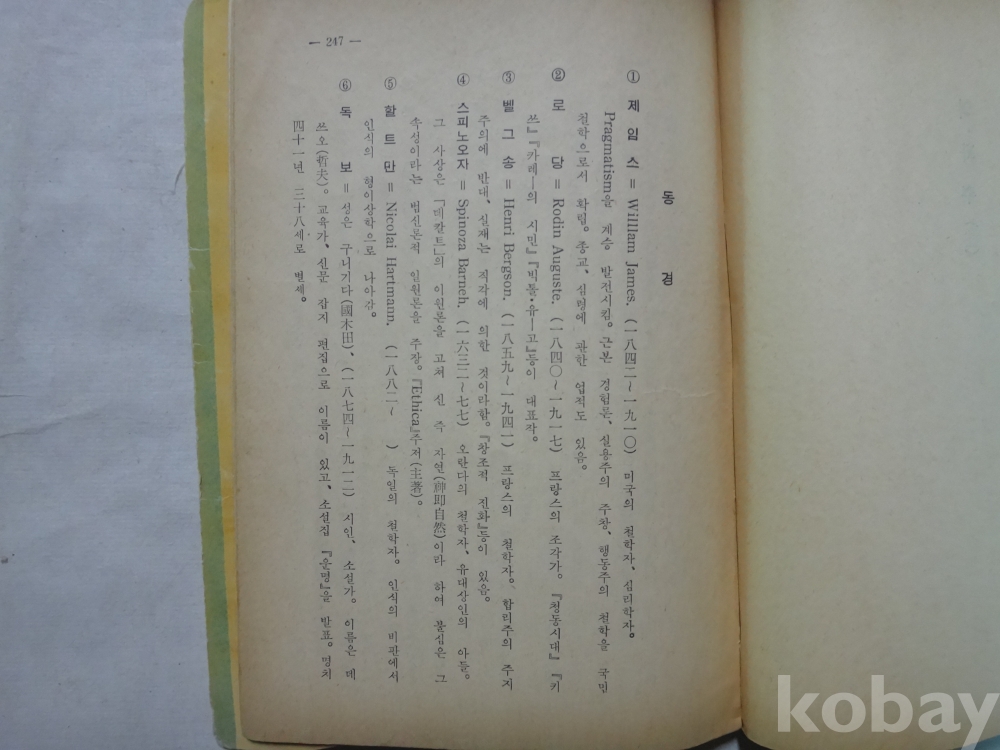 동경
① 제임스 = William James. (一八四二~一九一〇) 미국의 철학자、심리학자。
Pragmatism을 계승 발전시킴。근본 경험론、실용주의 주창、행동주의 철학을 국민
철학으로서 확립。종교、심령에 관한 업적도 있음。
② 로당 = Rodin Auguste. (一八四〇~一九一七) 프랑스의 조각가。『청동시대』『키
쓰』『카레—의 시민』『빅톨·유—고』등이 대표작。
③ 벨그송 = Henri Bergson. (一八五九~一九四一) 프랑스의 철학자。합리주의 주지
주의에 반대、실재는 직각에 의한 것이라함。『창조적 진화』등이 있음。
④ 스피노오자 = Spinoza Barneh. (一六三二~七七) 오란다의 철학자、유대상인의 아들。
그 사상은 「데칼트」의 이원론을 고쳐 신 즉 자연(神即自然)이라 하여 불심은 그
속성이라는 범신론적 일원론을 주장。『Ethica』주저(主著)。
⑤ 할트만 = Nicolai Hartmann. (一八八二~ ) 독일의 철학자。인식의 비판에서
인식의 형이상학으로 나아감。
⑥ 독보 = 성은 구니기다(國木田)、(一八七四~一九一二) 시인、소설가。이름은 데
쓰오(哲夫)。교육가、신문 잡지 편집으로 이름이 있고、소설집 『운명』을 발표。명치
四十一년 三十八세로 별세。
— 247 —
kobay